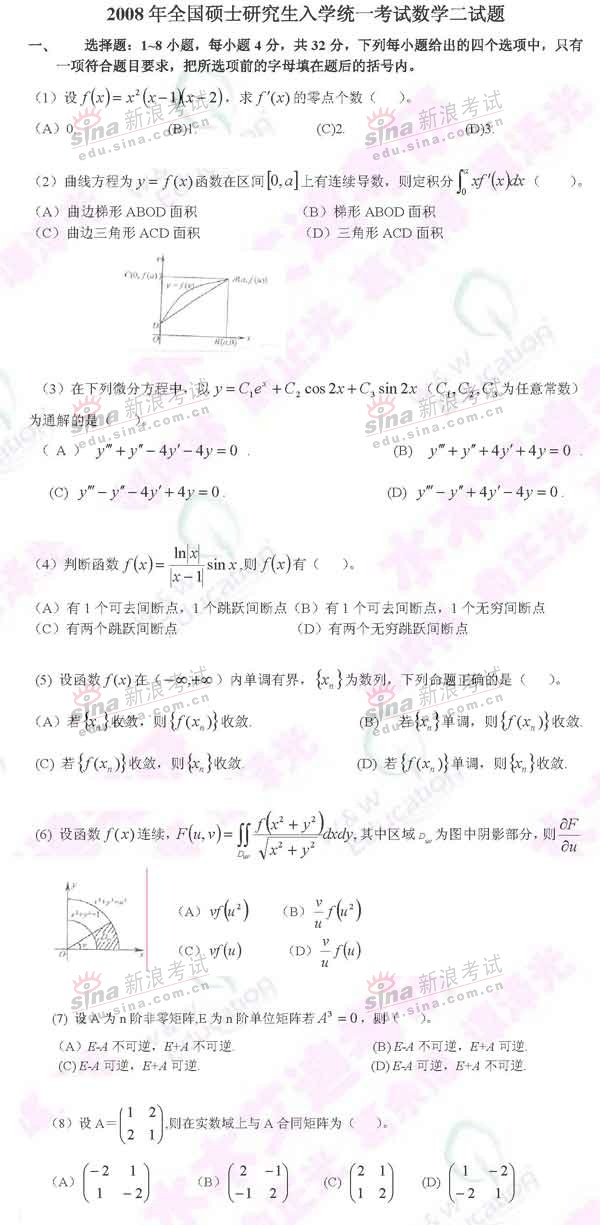 2008 年全国硕士研究生入学统一考试数学二试题
一、 选择题：1~8 小题，每小题 4 分，共 32 分，下列每小题给出的四个选项中，只有
一项符合题目要求，把所选项前的字母填在题后的括号内。
（1）设 f(x)=x²(x−1)(x−2)，求 f′(x) 的零点个数（ ）。
(A) 0. (B)1. (C)2. (D)3.
（2）曲线方程为 y=f(x) 函数在区间 [0,a] 上有连续导数，则定积分 ∫₀ᵃ xf′(x)dx（ ）。
（A）曲边梯形 ABOD 面积 （B）梯形 ABOD 面积
（C）曲边三角形 ACD 面积 （D）三角形 ACD 面积
C(0, f(a)) A(a, f(a))
y=f(x)
D
B(a,0) x
（3）在下列微分方程中，以 y=C₁eˣ+C₂cos2x+C₃sin2x（C₁,C₂,C₃ 为任意常数）
为通解的是（ ）。
（A） y‴+y″−4y′−4y=0 . (B) y‴+y″+4y′+4y=0 .
(C) y‴−y″−4y′+4y=0 . (D) y‴−y″+4y′−4y=0 .
（4）判断函数 f(x)=ln|x|/|x−1| sin x ,则 f(x) 有（ ）。
（A）有 1 个可去间断点，1 个跳跃间断点（B）有 1 个可去间断点，1 个无穷间断点
（C）有两个跳跃间断点 （D）有两个无穷跳跃间断点
(5) 设函数 f(x) 在（−∞,+∞）内单调有界，{xₙ} 为数列，下列命题正确的是（ ）。
（A）若{xₙ}收敛，则{f(xₙ)}收敛. (B) 若{xₙ}单调，则{f(xₙ)}收敛.
(C) 若{f(xₙ)}收敛，则{xₙ}收敛. (D) 若{f(xₙ)}单调，则{xₙ}收敛.
(6) 设函数 f(x) 连续，F(u,v)=∬_{D_uv} f(x²+y²)/√(x²+y²) dxdy, 其中区域 D_uv 为图中阴影部分，则 ∂F/∂u
y
x²+y²=u²
x²+y²=1
v
O x
（A）vf(u²) （B）v/u f(u²)
（C）vf(u) （D）v/u f(u)
(7) 设 A 为 n 阶非零矩阵,E 为 n 阶单位矩阵若 A³=0，则（ ）。
（A）E-A 不可逆，E+A 不可逆. (B) E-A 不可逆，E+A 可逆.
(C) E-A 可逆，E+A 可逆. (D) E-A 可逆，E+A 不可逆.
（8）设 A＝(1 2; 2 1),则在实数域上与 A 合同矩阵为（ ）。
（A）(−2 1; 1 −2) （B）(2 −1; −1 2) (C) (2 1; 1 2) (D) (1 −2; −2 1)
sina 新浪考试
edu.sina.com.cn